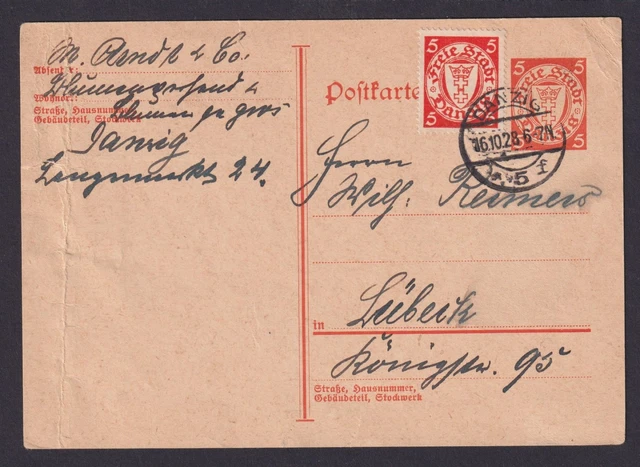 M. Arndt & Co.
Absender:
Blumenversand u
Wohnort:
Straße, Hausnummer,
Blumen en gros
Gebäudeteil, Stockwerk
Danzig
Langenmarkt 24.
Postkarte
5 5
Freie Stadt
Danzig
5 5
5 5
Freie Stadt
5
DANZIG
16.10.28.6-7N
* 5 f
Herrn
Wilh. Reimers
Lübeck
in
Königstr. 95
Straße, Hausnummer,
Gebäudeteil, Stockwerk